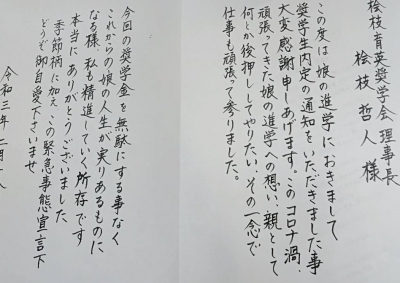 桧枝育英奨学会理事長
桧枝哲人様
この度は娘の進学におきまして
奨学生内定の通知をいただきました事
大変感謝申しあげます。このコロナ渦.
頑張ってきた娘の進学への想い、親として
何とか後押ししてやりたい、その一念で
仕事も頑張って参りました。
今回の奨学金を無駄にする事なく
これからの娘の人生が実りあるものに
なる様、私も精進していく所存です
本当にありがとうございました
季節柄に加え、この緊急事態宣言下
どうぞ御自愛下さいませ
令和三年二月